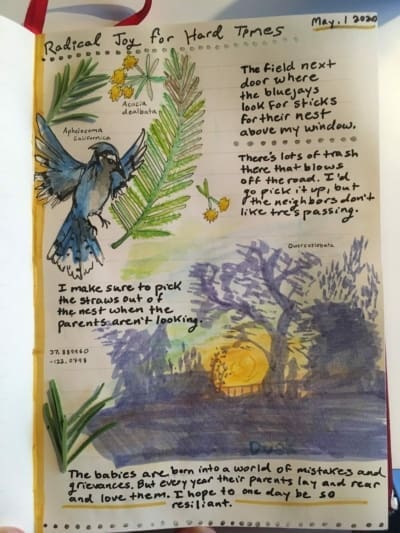 May, 1 2020
Radical Joy for Hard Times
Acacia
dealbata
Aphelocoma
californica
The field next
door where
the bluejays
look for sticks
for their nest
above my window.
There's lots of trash
there that blows
off the road. I'd
go pick it up, but
the neighbors don't
like trespassing.
Quercus lobata
I make sure to pick
the straws out of
the nest when the
parents aren't looking.
Dusk
The babies are born into a world of mistakes and
grievances. But every year their parents lay and rear
and love them. I hope to one day be so
resiliant.